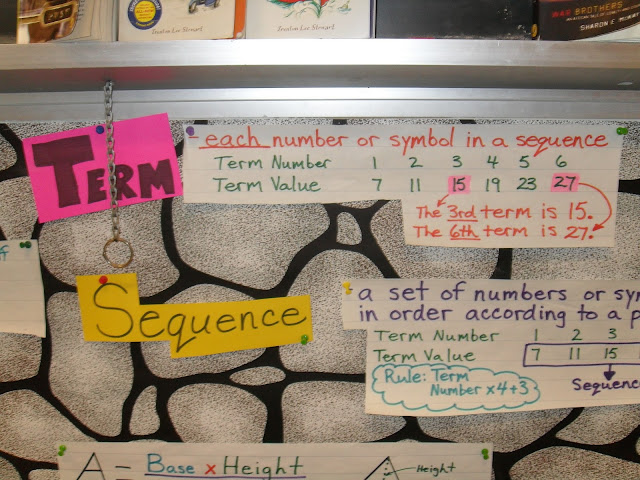 Trenton Lee Stewart
Trenton Lee Stewart
WAR BROTHERS
SHARON E. 
TERM
each number or symbol in a sequence
Term Number 1 2 3 4 5 6
Term Value 7 11 15 19 23 27
The 3rd term is 15.
The 6th term is 27.
Sequence
a set of numbers or sy
in order according to a p
Term Number 1 2 3
Term Value 7 11 15
Rule: Term
Number x4+3
Sequenc
A = Base x Height
Height